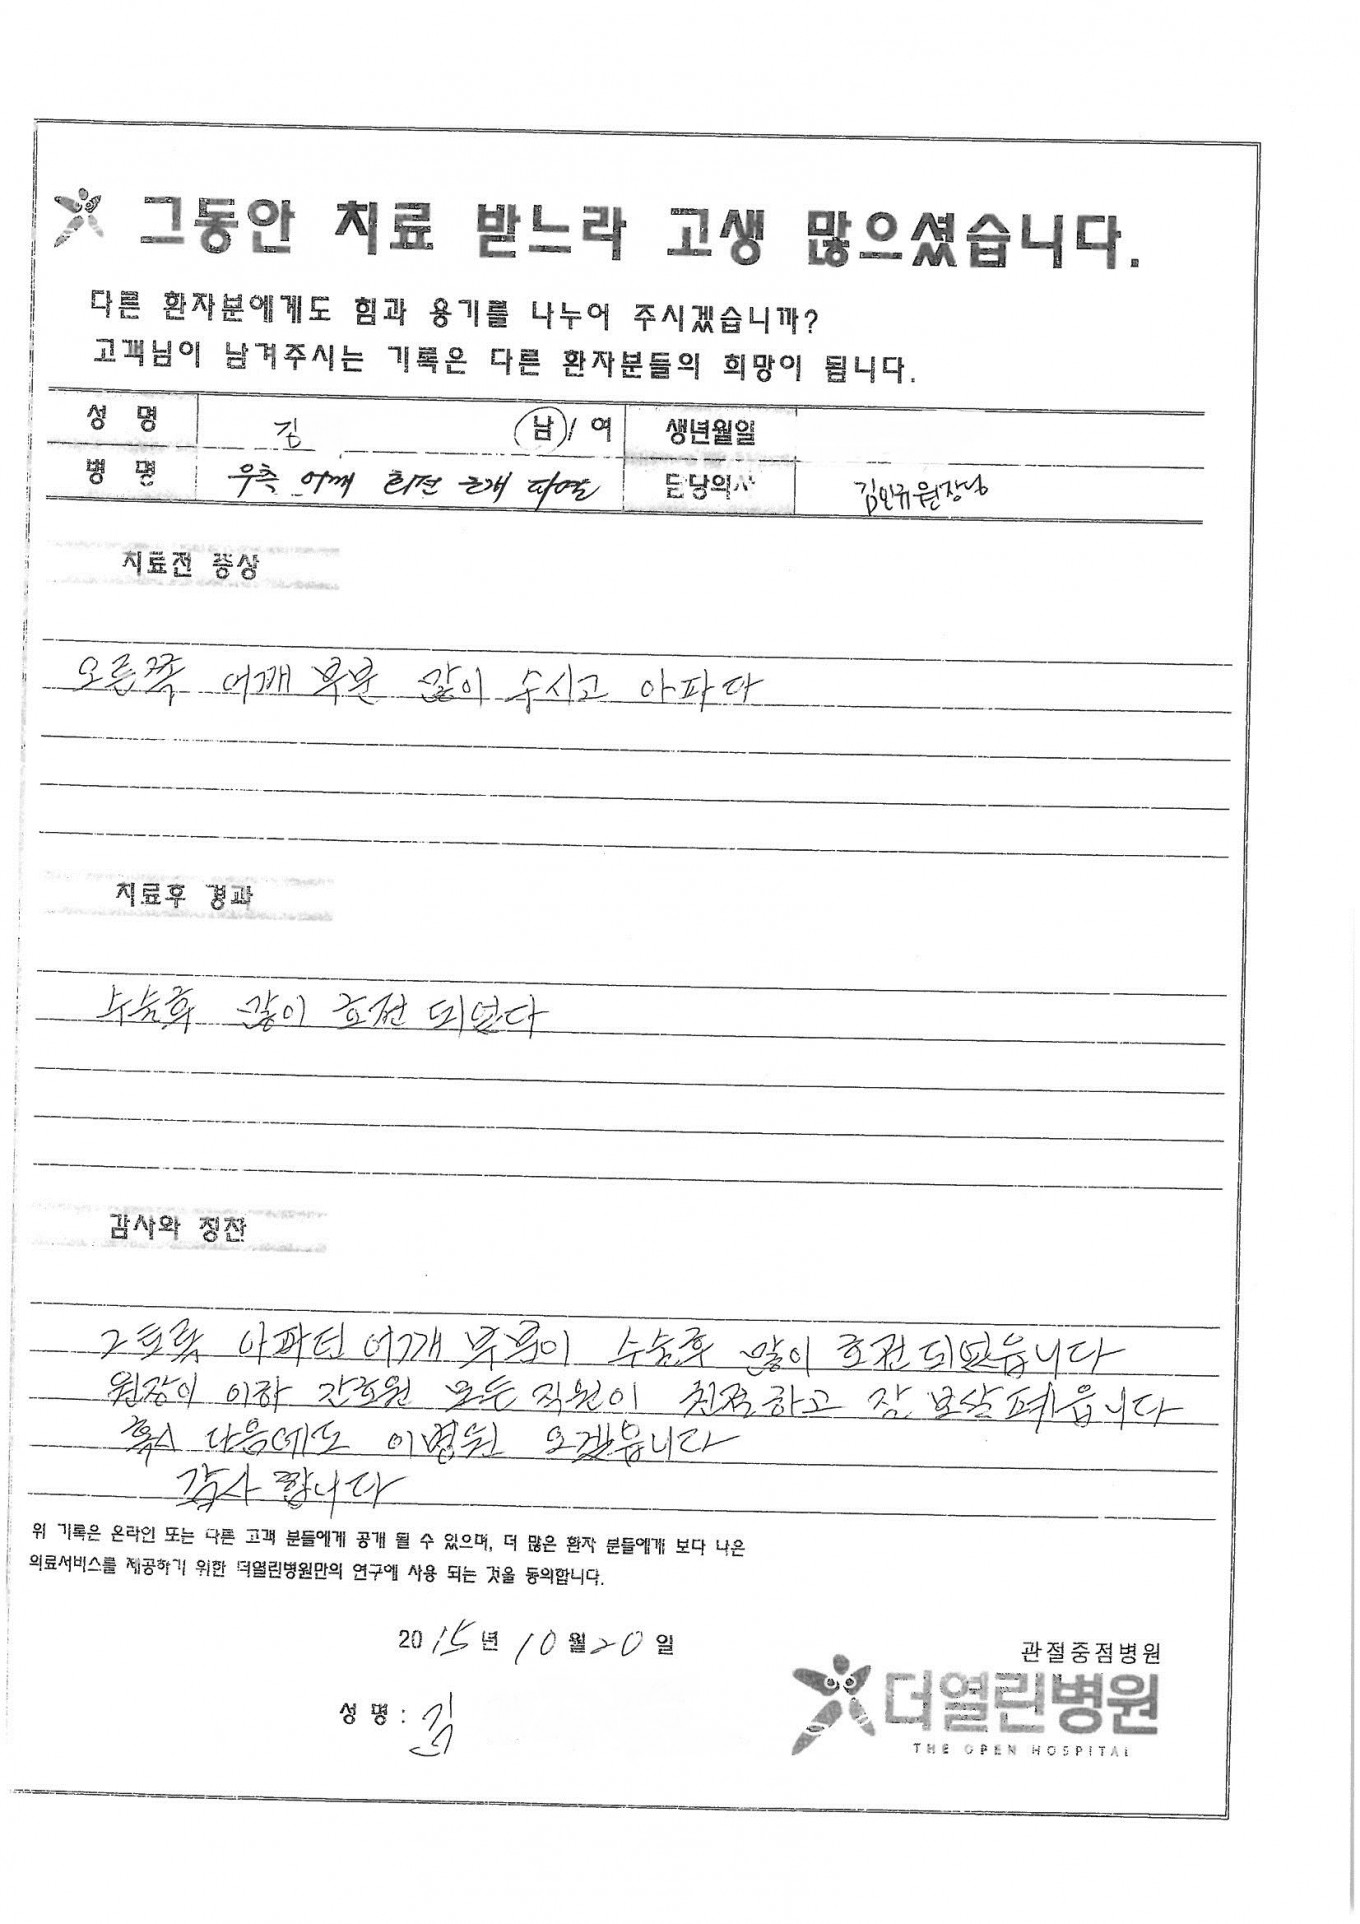 그동안 치료 받느라 고생 많으셨습니다.
다른 환자분에게도 힘과 용기를 나누어 주시겠습니까?
고객님이 남겨주시는 기록은 다른 환자분들의 희망이 됩니다.
성 명 김 남/여 생년월일
병 명 우측 어깨 회전 근개 파열 담당의사 김인규원장님
치료전 증상
오른쪽 어깨 부분 많이 수시고 아파다
치료후 경과
수술후 많이 호전 되였다
감사와 칭찬
그토록 아파던 어개 부분이 수술후 많이 호전 되였읍니다
원장이 이하 간호원 모든 직원이 친절하고 잘 보살펴읍니다
혹시 다음에도 이병원 오겠읍니다
감사 합니다
위 기록은 온라인 또는 다른 고객 분들에게 공개 될 수 있으며, 더 많은 환자 분들에게 보다 나은
의료서비스를 제공하기 위한 더열린병원만의 연구에 사용 되는 것을 동의합니다.
2015년 10월 20일
성 명 : 김
관절중점병원
더열린병원
THE OPEN HOSPITAL